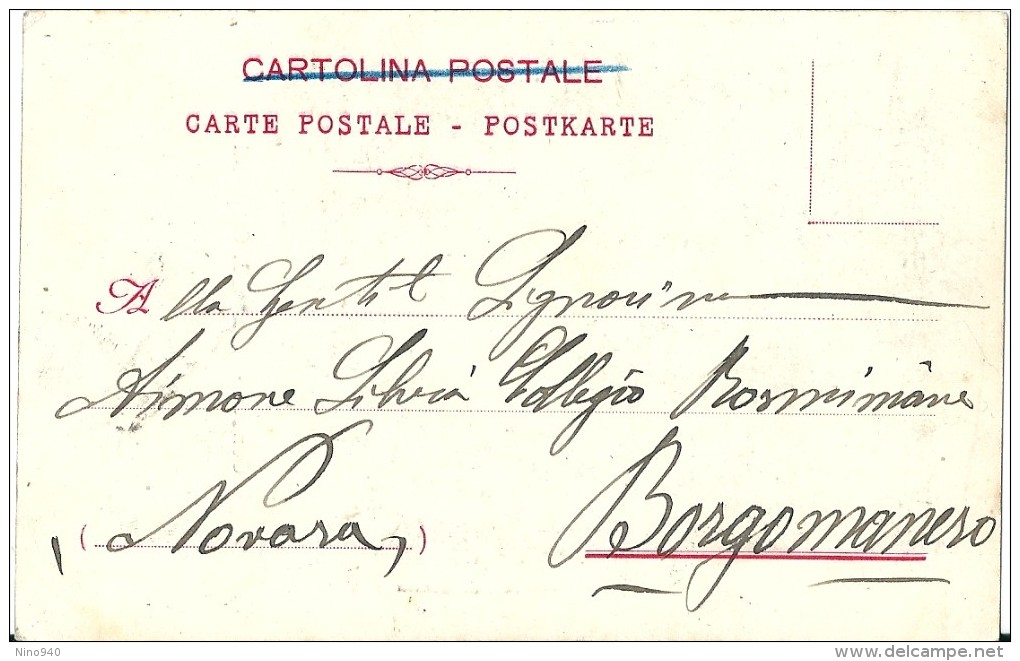 CARTOLINA POSTALE
CARTE POSTALE - POSTKARTE
Alla Gentil Signorina
Aimone Silvia Collegio Rosminiane
(Novara)
Borgomanero
Nino940
www.delcampe.net